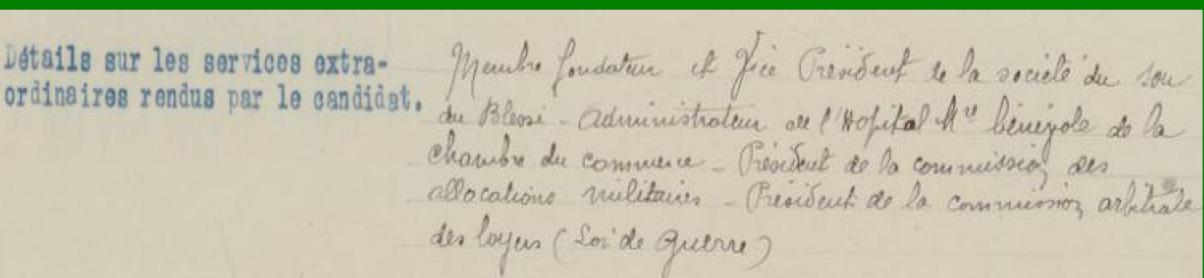 Détails sur les services extra-
ordinaires rendus par le candidat.
Membre fondateur et Vice Président de la société du sou
du Blessé - Administrateur de l'Hopital bénévole de la
chambre du commerce - Président de la commission des
allocations militaires - Président de la commission arbitrale
des loyers (Loi de Guerre)